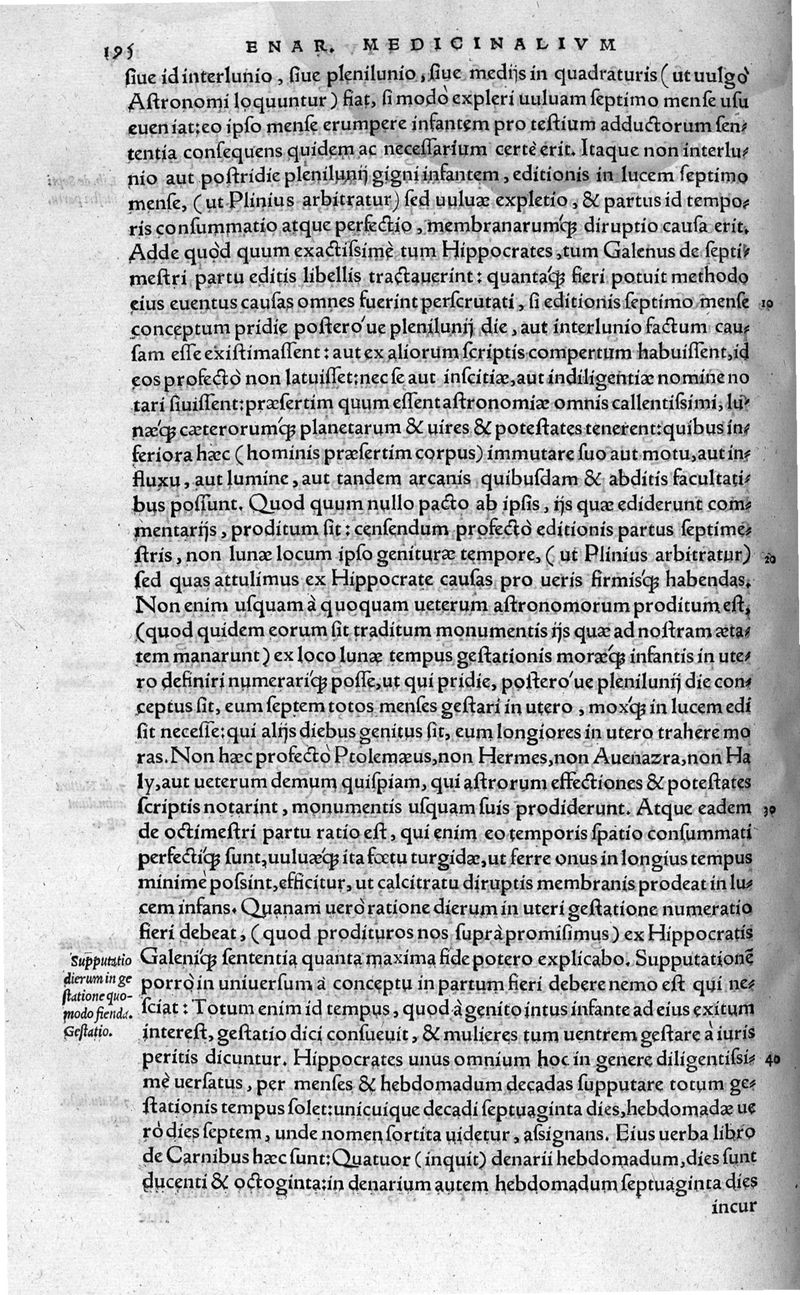 195
ENAR. MEDICINALIVM
ſiue id interlunio, ſiue plenilunio, ſiue medijs in quadraturis (ut uulgò
Aſtronomi loquuntur) fiat, ſi modò expleri uuluam ſeptimo menſe uſu
eueniat: eo ipſo menſe erumpere infantem pro teſtium adductorum ſen⸗
tentia conſequens quidem ac neceſſarium certè erit. Itaque non interlu⸗
nio aut poſtridie plenilunij gigni infantem, editionis in lucem ſeptimo
menſe, (ut Plinius arbitratur) ſed uuluæ expletio, & partus id tempo⸗
ris conſummatio atque perfectio, membranarumq́ꝫ diruptio cauſa erit.
Adde quòd quum exactiſsimè tum Hippocrates, tum Galenus de ſepti⸗
meſtri partu editis libellis tractauerint: quantaq́ꝫ fieri potuit methodo
eius euentus cauſas omnes fuerint perſcrutati, ſi editionis ſeptimo menſe
10
conceptum pridie poſtero'ue plenilunij die, aut interlunio factum cau⸗
ſam eſſe exiſtimaſſent: aut ex aliorum ſcriptis compertum habuiſſent, id
eos profectò non latuiſſet: nec ſe aut inſcitiæ, aut indiligentiæ nomine no
tari ſiuiſſent: præſertim quum eſſent aſtronomiæ omnis callentiſsimi, lu⸗
næq́ꝫ cæterorumq́ꝫ planetarum & uires & poteſtates tenerent: quibus in⸗
feriora hæc (hominis præſertim corpus) immutare ſuo aut motu, aut in⸗
fluxu, aut lumine, aut tandem arcanis quibuſdam & abditis facultati⸗
bus poſſunt. Quod quum nullo pacto ab ipſis, ijs quæ ediderunt com⸗
mentarijs, proditum ſit: cenſendum profectò editionis partus ſeptime⸗
ſtris, non lunæ locum ipſo genituræ tempore, (ut Plinius arbitratur)
20
ſed quas attulimus ex Hippocrate cauſas pro ueris firmisq́ꝫ habendas.
Non enim uſquam à quoquam ueterum aſtronomorum proditum eſt,
(quod quidem eorum ſit traditum monumentis ijs quæ ad noſtram æta⸗
tem manarunt) ex loco lunæ tempus geſtationis moræq́ꝫ infantis in ute⸗
ro definiri numerariq́ꝫ poſſe, ut qui pridie, poſtero'ue plenilunij die con⸗
ceptus ſit, eum ſeptem totos menſes geſtari in utero, moxq́ꝫ in lucem edi
ſit neceſſe: qui alijs diebus genitus ſit, eum longiores in utero trahere mo
ras. Non hæc profectò Ptolemæus, non Hermes, non Auenazra, non Ha
ly, aut ueterum demum quiſpiam, qui aſtrorum effectiones & poteſtates
ſcriptis notarint, monumentis uſquam ſuis prodiderunt. Atque eadem
30
de octimeſtri partu ratio eſt, qui enim eo temporis ſpatio conſummati
perfectiq́ꝫ ſunt, uuluæq́ꝫ ita fœtu turgidæ, ut ferre onus in longius tempus
minimè poſsint, efficitur, ut calcitratu diruptis membranis prodeat in lu⸗
cem infans. Quanam uerò ratione dierum in uteri geſtatione numeratio
fieri debeat, (quod prodituros nos ſuprà promiſimus) ex Hippocratis
Galeniq́ꝫ ſententia quanta maxima fide potero explicabo. Supputationē
porrò in uniuerſum à conceptu in partum fieri debere nemo eſt qui ne⸗
ſciat: Totum enim id tempus, quod à genito intus infante ad eius exitum
intereſt, geſtatio dici conſueuit, & mulieres tum uentrem geſtare à iuris
peritis dicuntur. Hippocrates unus omnium hoc in genere diligentiſsi⸗
40
mè uerſatus, per menſes & hebdomadum decadas ſupputare totum ge⸗
ſtationis tempus ſolet: unicuique decadi ſeptuaginta dies, hebdomadæ ue
rò dies ſeptem, unde nomen ſortita uidetur, aſsignans. Eius uerba libro
de Carnibus hæc ſunt: Quatuor (inquit) denarii hebdomadum, dies ſunt
ducenti & octoginta: in denarium autem hebdomadum ſeptuaginta dies
incur
Supputatio
dierum in ge
ſtatione quo⸗
modo fienda.
Geſtatio.